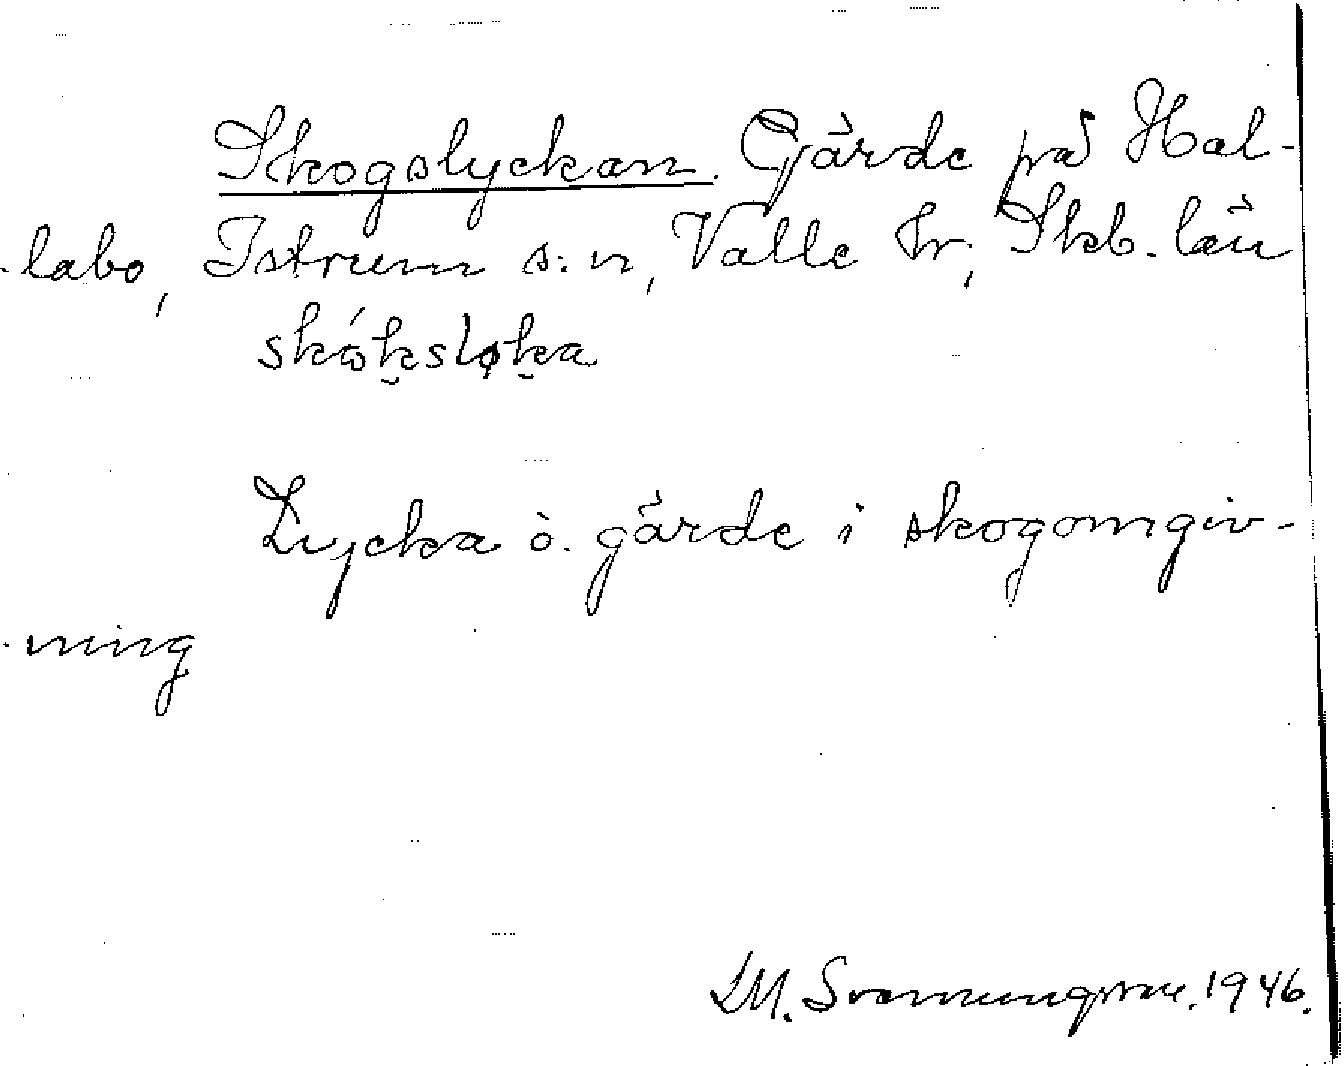 Skogslyckan. Gärde på Hal-
labo, Istrum s:n, Valle hr, Skb. län
skóksløka
Lycka o. gärde i skogomgiv-
ning
D.M. Svennungsson. 1946.